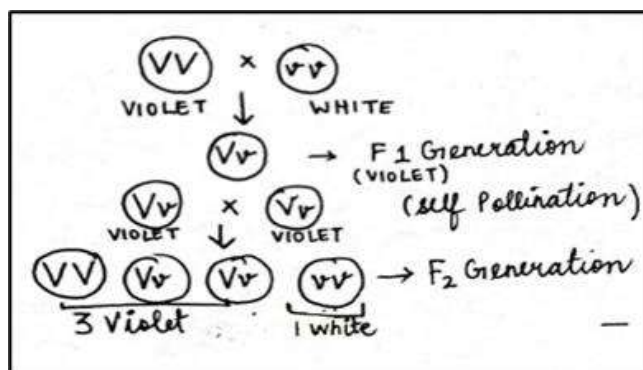 VV × vv
VIOLET WHITE
Vv → F1 Generation
(VIOLET)
(self Pollination)
Vv × Vv
VIOLET VIOLET
VV Vv Vv vv → F2 Generation
3 Violet 1 white